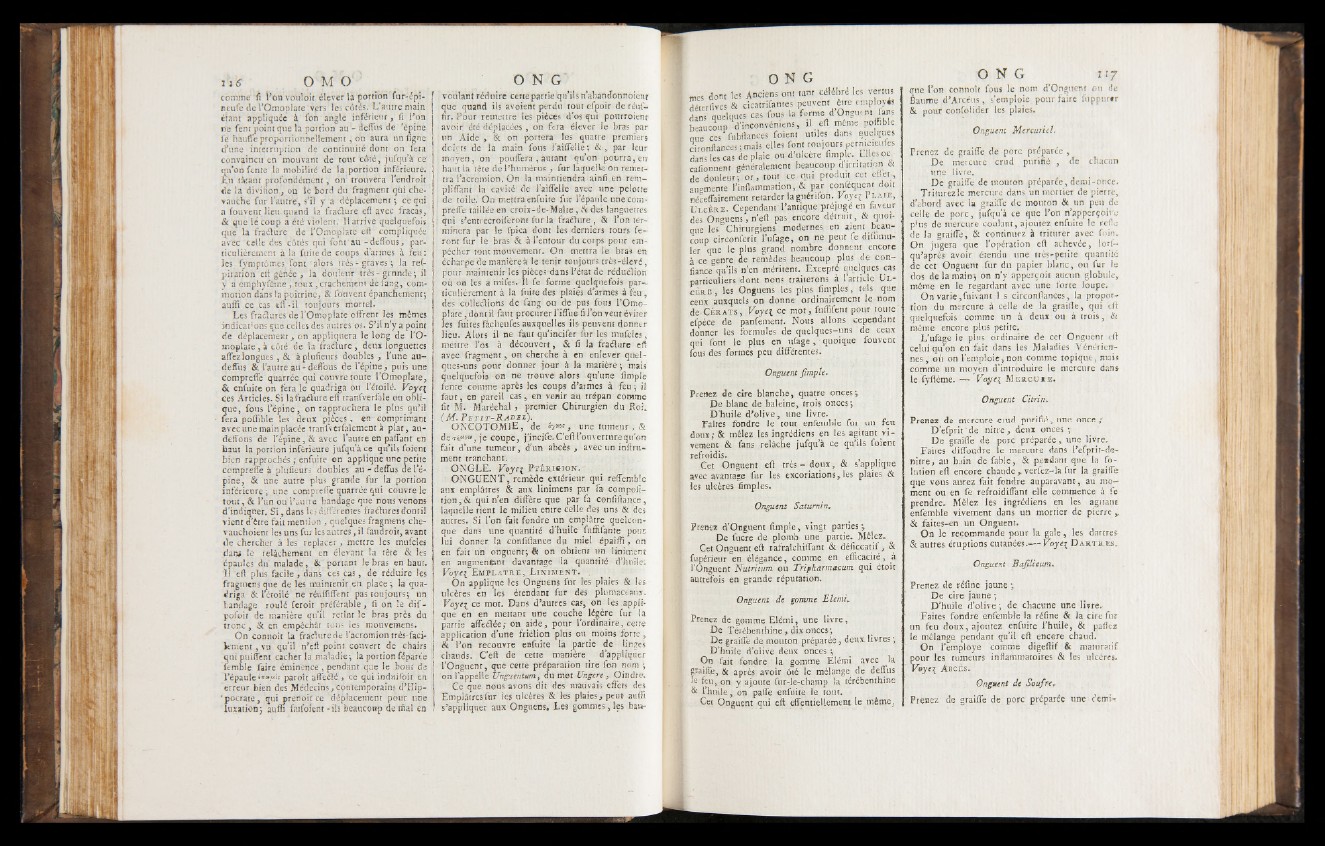 116 OMO
comme si l'on vouloit élever la portion sur-épi-
neuse de l'Omoplate vers les côtés. L'autre main
étant appliquée à son angle inférieur, si l'on
ne sent point que la portion au-dessus de l'épine
se hausse proportionnellement, on aura un signe
d'une interruption de continuité dont on sera
convaincu en mouvant de tout côté, jusqu'à ce
qu'on sente la mobilité de la portion inférieure.
En tâtant profondément, on trouvera l'endroit
de la division, ou le bord du fragment qui che-
vauche sur l'autre, s'il y a déplacement; ce qui
a souvent lieu quand la fracture est avec fracas,
& que le coup a été violent. Il arrive quelquefois
que la fracture de l'Omoplate est compliquée
avec celle des côtes qui sont au-dessous, par-
ticulièrement à la suite de coups d'armes à feu:
les symptômes sont alors très-graves; la res-
piration est gênée, la douleur très-grande; il
y a emphysème, toux, crachement de sang, com-
motion dans la poitrine, & souvent épanchement;
aussi ce cas est-il toujours mortel.
Les fractures de l'Omoplate offrent les mêmes
indications que celles des autres os. S'il n'y a point
de déplacement, on appliquera le long de l'O-
moplate, à côté de sa fracture, deux longuettes
assez longues, & à plusieurs doubles, l'une au-
dessus & l'autre au-dessous de l'épine, puis une
compresse quarrée qui couvre toute l'Omoplate,
& ensuite on fera le quadriga ou l'étoilé. Voyez
ces Articles. Si la fracture est transversale ou obli-
que, sous l'épine, on rapprochera le plus qu'il
sera possible les deux pièces, en comprimant
avec une main placée transversalement à plat, au-
dessous de l'épine, & avec l'autre en passant en
haut la portion inférieure jusqu'à ce qu'ils soient
bien rapprochés; ensuite on applique une petite
compresse à plusieurs doubles au-dessus de l'é-
pine, & une autre plus grande sur la portion
inférieure, une compresse quarrée qui couvre le
tout, & l'un ou l'autre bandage que nous venons
d'indiquer. Si, dans les différentes fractures dont il
vient d'être fait mention, quelques fragmens che-
vauchoient les uns sur les autres, il faudroit, avant
de chercher à les replacer, mettre les muscles
dans le relâchement en élevant la tête & les
épaules du malade, & portant le bras en haut.
Il est plus facile, dans ces cas, de réduire les
fragmens que de les maintenir en place; la qua-
driga & l'étoilé ne réussissent pas toujours; un
bandage roulé seroit préférable, si on le dis-
posoit de manière qu'il retint le bras près du
tronc, & en empêchât tous les mouvemens.
On connoit la fracture de l'acromion très-faci-
lement, vu qu'il n'est point couvert de chairs
qui puissent cacher la maladie; la portion séparée
semble faire éminence, pendant que le bout de
l'épaule paroît affecté, ce qui induisoit en
erreur bien des Médecins, contemporains d'Hip-
pocrate, qui prenoit ce déplacement pour une
luxation; aussi faisoient-ils beaucoup de mal en
ONG
voulant réduire cette partie qu'ils n'abandonnoient
que quand ils avoient perdu tout espoir de réus-
sir. Pour remettre les pièces d'os qui pourroient
avoir été déplacées, on fera élever le bras par
un Aide, & on portera les quatre premiers
doigts de la main sous l'aisselle; &, par leur
moyen, on poussera, autant qu'on pourra, en
haut la tête de l'humérus, sur laquelle on remet-
tra l'acromion. On la maintiendra ainsi en rem-
plissant la cavité de l'aisselle avec une pelotte
de toile. On mettra ensuite sur l'épaule une com-
presse taillée en croix-de-Malte, & des languettes
qui s'entrecroiseront sur la fracture, & l'on ter-
minera par le spica dont les derniers tours se-
ront sur le bras & à l'entour du corps pour em-
pêcher tout mouvement. On mettra le bras en
écharpe de manière à le tenir toujours très-élevé,
pour maintenir les pièces dans l'état de réduction
où on les a mises. Il se forme quelquefois par-
ticulièrement à la suite des plaies d'armes à feu,
des collections de sang ou de pus sous l'Omo-
plate, dont il faut procurer l'issue si l'on veut éviter
les suites fâcheuses auxquelles ils peuvent donner
lieu. Alors il ne faut qu'inciser sur les muscles,
mettre l'os à découvert, & si la fracture est
avec fragment, on cherche à en enlever quel-
ques-uns pour donner jour à la matière; mais
quelquefois on ne trouve alors qu'une simple
fente comme après les coups d'armes à feu; il
faut, en pareil cas, en venir au trépan comme
fit M. Maréchal, premier Chirurgien du Roi.
(M. PETIT-RADEL).
ONCOTOMIE, de ὄγκος, une tumeur, &
de τέμνω, je coupe, j'incise. C'est l'ouverture qu'on
fait d'une tumeur, d'un abcès, avec un instru-
ment tranchant.
ONGLE. Voyez PTÉRIGION.
ONGUENT, remède extérieur qui ressemble
aux emplâtres & aux linimens par sa composi-
tion, & qui n'en diffère que par sa consistance,
laquelle tient le milieu entre celle des uns & des
autres. Si l'on fait fondre un emplâtre quelcon-
que dans une quantité d'huile suffisante pour
lui donner la consistance du miel épaissi, on
en fait un onguent; & on obtient un liniment
en augmentant davantage la quantité d'huile.
Voyez EMPLATRE, LINIMENT.
On applique les Onguens sur les plaies & les
ulcères en les étendant sur des plumaceaux.
Voyez ce mot. Dans d'autres cas, on les appli-
que en en mettant une couche légère sur la
partie affectée; on aide, pour l'ordinaire, cette
application d'une friction plus ou moins forte,
& l'on recouvre ensuite la partie de linges
chauds. C'est de cette manière d'appliquer
l'Onguent, que cette préparation tire son nom;
on l'appelle Unguentum, du mot Ungere, Oindre.
Ce que nous avons dit des mauvais effets des
Emplâtres sur les ulcères & les plaies, peut aussi
s'appliquer aux Onguens. Les gommes, les bau-
ONG
mes dont les Anciens ont tant célébré les vertus
détersives & cicatrisantes peuvent être employés
dans quelques cas sous la forme d'Onguent sans
beaucoup d'inconvéniens, il est même possible
que ces substances soient utiles dans quelques
circonstances; mais elles sont toujours pernicieuses
dans les cas de plaie ou d'ulcère simple. Elles oc-
casionnent généralement beaucoup d'irritation &
de douleur; or, tout ce qui produit cet effet,
augmente l'inflammation, & par conséquent doit
nécessairement retarder la guérison. Voyez PLAIE,
ULCÈRE. Cependant l'antique préjugé en faveur
des Onguens, n'est pas encore détruit, & quoi-
que les Chirurgiens modernes en aient beau-
coup circonscrit l'usage, on ne peut se dissimu-
ler que le plus grand nombre donnent encore
à ce genre de remèdes beaucoup plus de con-
fiance qu'ils n'en méritent. Excepté quelques cas
particuliers dont nous traiterons à l'article UL-
CÈRE, les Onguens les plus simples, tels que
ceux auxquels on donne ordinairement le nom
de CÉRATS, Voyez ce mot, suffisent pour toute
espèce de pansement. Nous allons cependant
donner les formules de quelques-uns de ceux
qui sont le plus en usage, quoique souvent
sous des formes peu différentes.
Onguent simple.
Prenez de cire blanche, quatre onces;
De blanc de baleine, trois onces;
D'huile d'olive, une livre.
Faites fondre le tout ensemble sur un feu
doux; & mêlez les ingrédiens en les agitant vi-
vement & sans relâche jusqu'à ce qu'ils soient
refroidis.
Cet Onguent est très-doux, & s'applique
avec avantage sur les excoriations, les plaies &
les ulcères simples.
Onguent Saturnin.
Prenez d'Onguent simple, vingt parties;
De sucre de plomb une partie. Mêlez.
Cet Onguent est rafraîchissant & désiccatif, &
supérieur en élégance, comme en efficacité, à
l'Onguent Nutritum ou Tripharmacum qui étoit
autrefois en grande réputation.
Onguent de gomme Elemi.
Prenez de gomme Elémi, une livre,
De Térébenthine, dix onces;
De graisse de mouton préparée, deux livres;
D'huile d'olive deux onces;
On fait fondre la gomme Elémi avec la
graisse, & après avoir ôté le mélange de dessus
le feu, on y ajoute sur-le-champ la térébenthine
& l'huile, on passe ensuite le tout.
Cet Onguent qui est essentiellement le même,
ONG 117
que l'on connoît sous le nom d'Onguent ou de
Baume d'Arceus, s'emploie pour faire suppurer
& pour consolider les plaies.
Onguent Mercuriel.
Prenez de graisse de porc préparée,
De mercure crud purifié, de chacun
une livre.
De graisse de mouton préparée, demi-once.
Triturez le mercure dans un mortier de pierre,
d'abord avec la graisse de mouton & un peu de
celle de porc, jusqu'à ce que l'on n'apperçoive
plus de mercure coulant, ajoutez ensuite le reste
de la graisse, & continuez à triturer avec soin.
On jugera que l'opération est achevée, lors-
qu'après avoir étendu une très-petite quantité
de cet Onguent sur du papier blanc, ou sur le
dos de la main; on n'y apperçoit aucun globule,
même en le regardant avec une forte loupe.
On varie, suivant les circonstances, la propor-
tion du mercure à celle de la graisse, qui est
quelquefois comme un à deux ou à trois, &
même encore plus petite.
L'usage le plus ordinaire de cet Onguent est
celui qu'on en fait dans les Maladies Vénérien-
nes, où on l'emploie, non comme topique, mais
comme un moyen d'introduire le mercure dans
le système. — Voyez MERCURE.
Onguent Citrin.
Prenez de mercure crud purifié, une once;
D'esprit de nitre, deux onces;
De graisse de porc préparée, une livre.
Faites dissoudre le mercure dans l'esprit-de-
nitre, au bain de sable, & pendant que la so-
lution est encore chaude, versez-la sur la graisse
que vous aurez fait fondre auparavant, au mo-
ment où en se refroidissant elle commence à se
prendre. Mêlez les ingrédiens en les agitant
ensemble vivement dans un mortier de pierre,
& faites-en un Onguent.
On le recommande pour la gale, les dartres
& autres éruptions cutanées. — Voyez DARTRES.
Onguent Basilicum.
Prenez de résine jaune;
De cire jaune;
D'huile d'olive; de chacune une livre.
Faites fondre ensemble la résine & la cire sur
un feu doux, ajoutez ensuite l'huile, & passez
le mélange pendant qu'il est encore chaud.
On l'employe comme digestif & maturatif
pour les tumeurs inflammatoires & les ulcères.
Voyez ABCÈS.
Onguent de Soufre.
Prenez de graisse de porc préparée une demi-